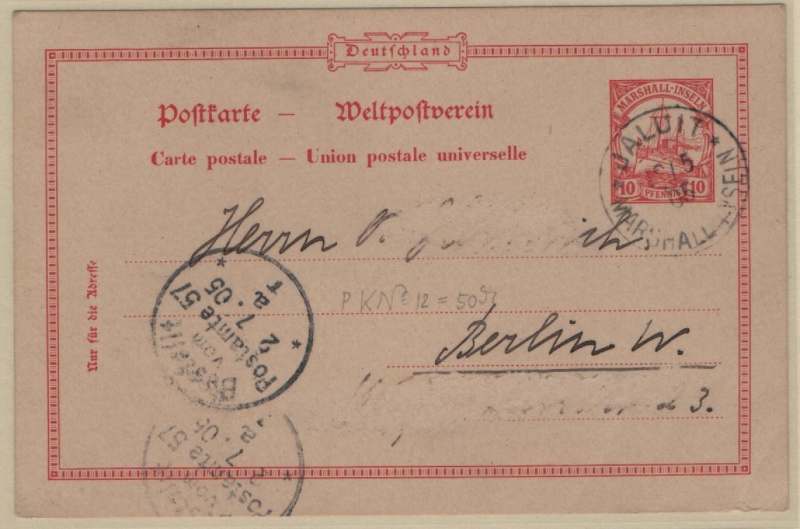 Deutschland
Postkarte — Weltpostverein
Carte postale — Union postale universelle
MARSHALL-INSELN
10 PFENNIG 10
* JALUIT *
MARSHALL-INSELN
5
05
Herrn
P K N° 12 = 50
Berlin W.
3.
Nur für die Adresse
Bestellt
vom
Postamte 57
2 7.05
a. T
Postamte 57
7.05
2.